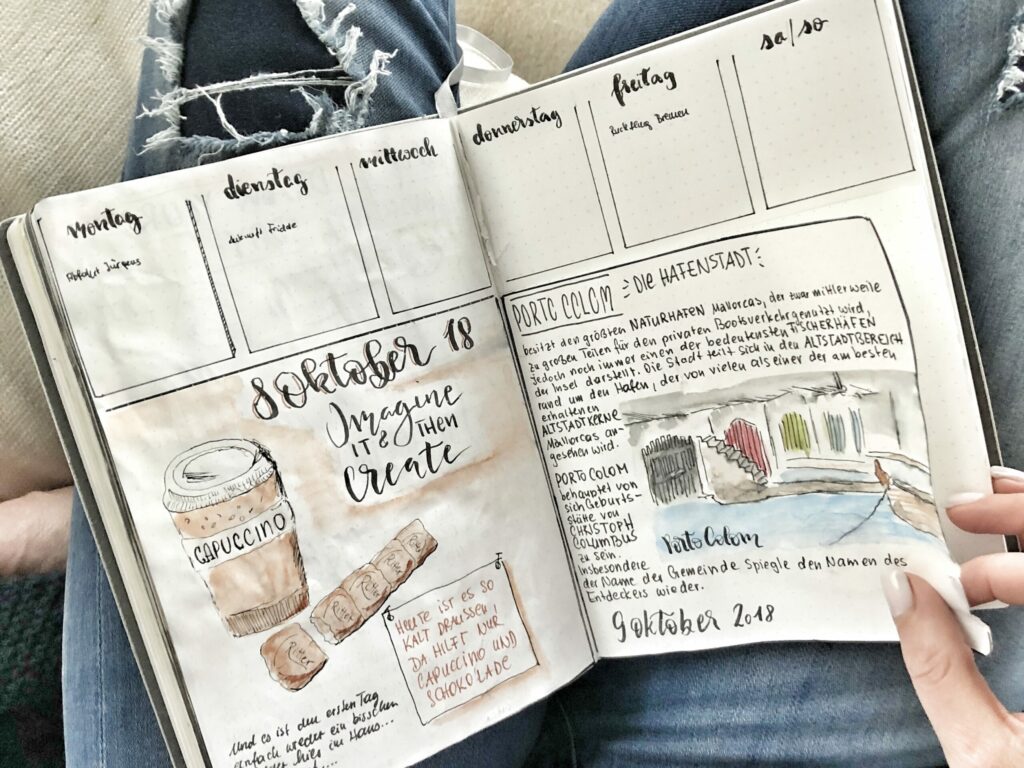 montag
Abfahrt Jürgens
dienstag
Ankunft
mittwoch
8 Oktober 18
Imagine
IT & THEN
create
CAPUCCINO
Ritter
Ritter
Ritter
Ritter
HEUTE IST ES SO
KALT DRAUSSEN!
DA HILFT NUR
CAPUCCINO UND
SCHOKOLADE
Und es ist den ersten Tag
einfach wieder ein bisschen
hier im Haus...
donnerstag
freitag
Rückflug Bremen
sa/so
PORTO COLOM DIE HAFENSTADT
besitzt den größten NATURHAFEN Mallorcas, der zwar mittlerweile
zu großen Teilen für den privaten Bootsverkehr genutzt wird,
jedoch noch immer einen der bedeutensten FISCHERHÄFEN
der Insel darstellt. Die Stadt teilt sich in den ALTSTADTBEREICH
rund um den Hafen, der von vielen als einer der am besten
erhaltenen
ALTSTADTKERNE
Mallorcas an-
gesehen wird.
PORTO COLOM
behauptet von
sich Geburts-
stätte von
CHRISTOPH
COLUMBUS
zu sein.
Insbesondere
der Name der Gemeinde Spiegle den Namen des
Entdeckers wieder.
Porto Colom
9 oktober 2018